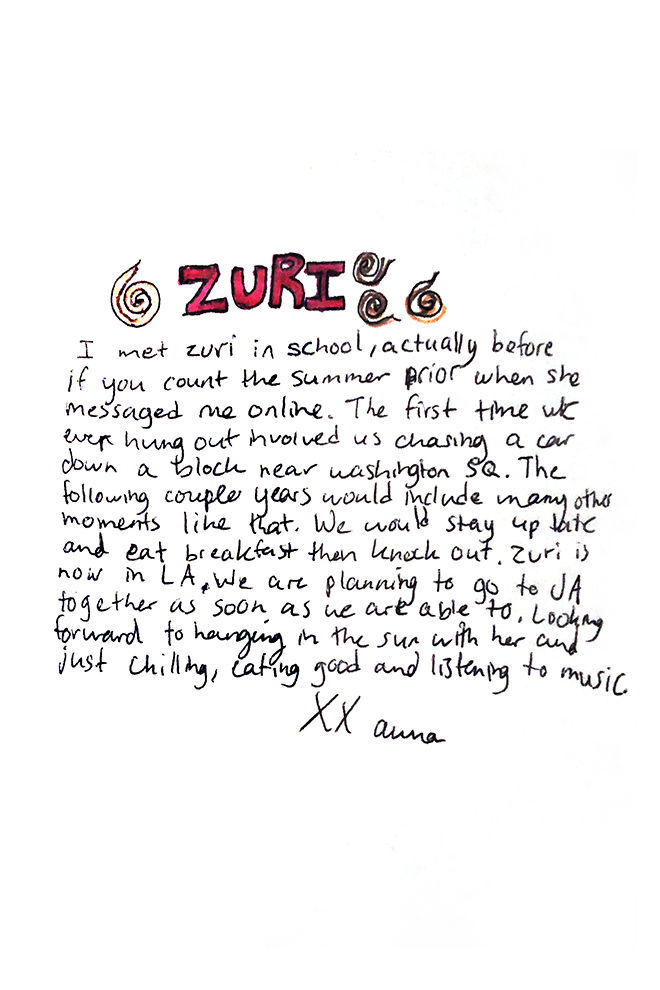 ZURI
I met zuri in school, actually before
if you count the summer prior when she
messaged me online. The first time we
ever hung out involved us chasing a car
down a block near washington SQ. The
following couple years would include many other
moments like that. We would stay up late
and eat breakfast then knock out. Zuri is
now in LA. We are planning to go to JA
together as soon as we are able to. Looking
forward to hanging in the sun with her and
just chilling, eating good and listening to music.
XX anna